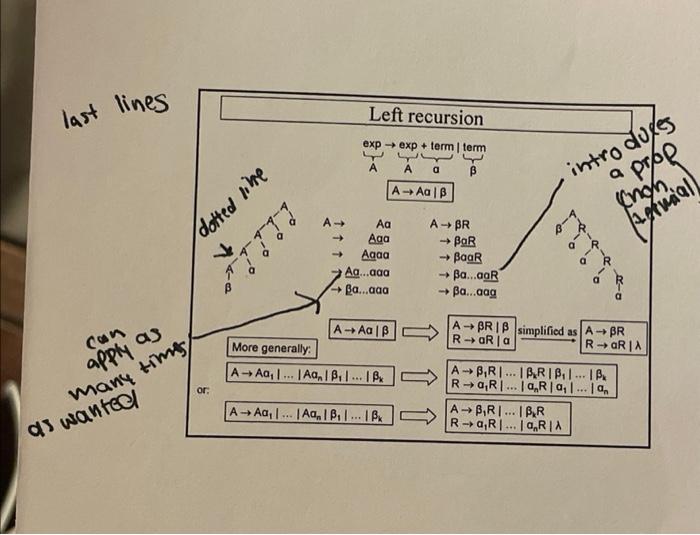 last lines
Left recursion
exp → exp + term | term
A A α β
A → Aα | β
introduces
a prop
(non
terminal)
dotted line
A → Aα
→ Aαα
→ Aααα
→ Aα...ααα
→ βα...ααα
A → βR
→ βαR
→ βααR
→ βα...ααR
→ βα...ααα
A
A α
A α
A α
A α
β
A
β R
α R
α R
α R
α
can
apply as
many times
as wanted
A → Aα | β
A → βR | β
R → αR | α
simplified as
A → βR
R → αR | λ
More generally:
A → Aα₁ | ... | Aαₙ | β₁ | ... | βₖ
A → β₁R | ... | βₖR | β₁ | ... | βₖ
R → α₁R | ... | αₙR | α₁ | ... | αₙ
or:
A → Aα₁ | ... | Aαₙ | β₁ | ... | βₖ
A → β₁R | ... | βₖR
R → α₁R | ... | αₙR | λ